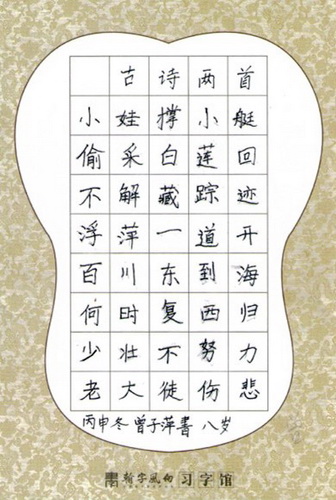 古诗两首
小娃撑小艇
偷采白莲回
不解藏踪迹
浮萍一道开
百川东到海
何时复西归
少壮不努力
老大徒伤悲
丙申冬曾子萍書 八岁
习字馆